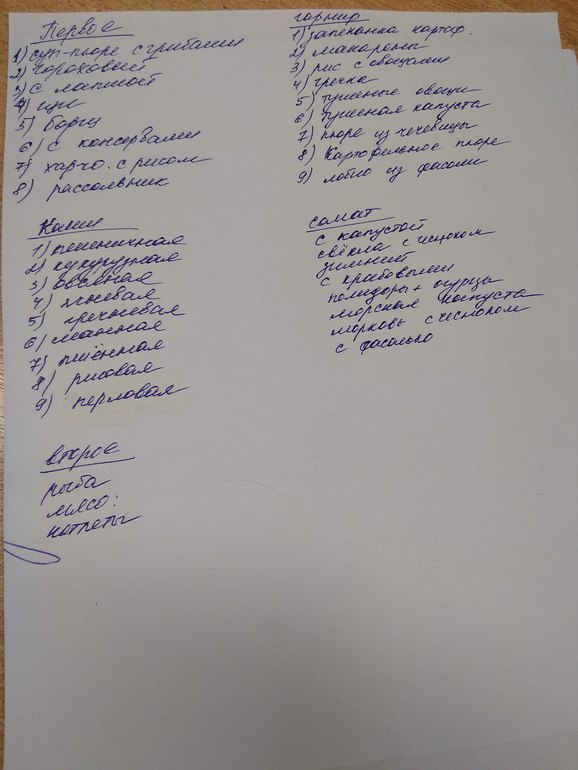 Первое
1) суп-пюре с грибами
2) Гороховый
3) С лапшой
4) щи
5) борщ
6) с консервами
7) харчо. с рисом
8) рассольник
Каши
1) пшеничная
2) кукурузная
3) овсяная
4) ячневая
5) гречневая
6) манная
7) пшённая
8) рисовая
9) перловая
второе
рыба
мясо:
котлеты
гарнир
1) запеканка картоф.
2) макароны
3) рис с овощами
4) гречка
5) тушеные овощи
6) тушеная капуста
7) пюре из чечевицы
8) Картофельное пюре
9) лобио из фасоли
салат
с капустой
свёкла с чесноком
зимний
с крабовыми
помидоры + огурцы
морская капуста
морковь с чесноком
с фасолью